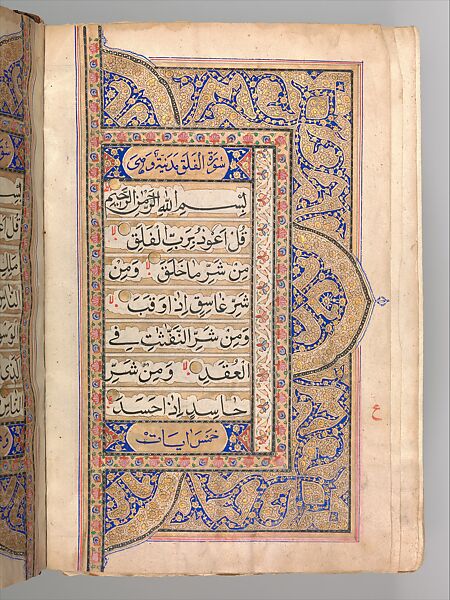 سُورَةُ الْفَلَقِ مَدَنِيَّةٌ وَهِيَ
بِسْمِ اللّٰهِ الرَّحْمٰنِ الرَّحِيْمِ
قُلْ اَعُوْذُ بِرَبِّ الْفَلَقِ
مِنْ شَرِّ مَا خَلَقَ وَمِنْ
شَرِّ غَاسِقٍ اِذَا وَقَبَ
وَمِنْ شَرِّ النَّفّٰثٰتِ فِي
الْعُقَدِ وَمِنْ شَرِّ
حَاسِدٍ اِذَا حَسَدَ
خمس ايات
ع